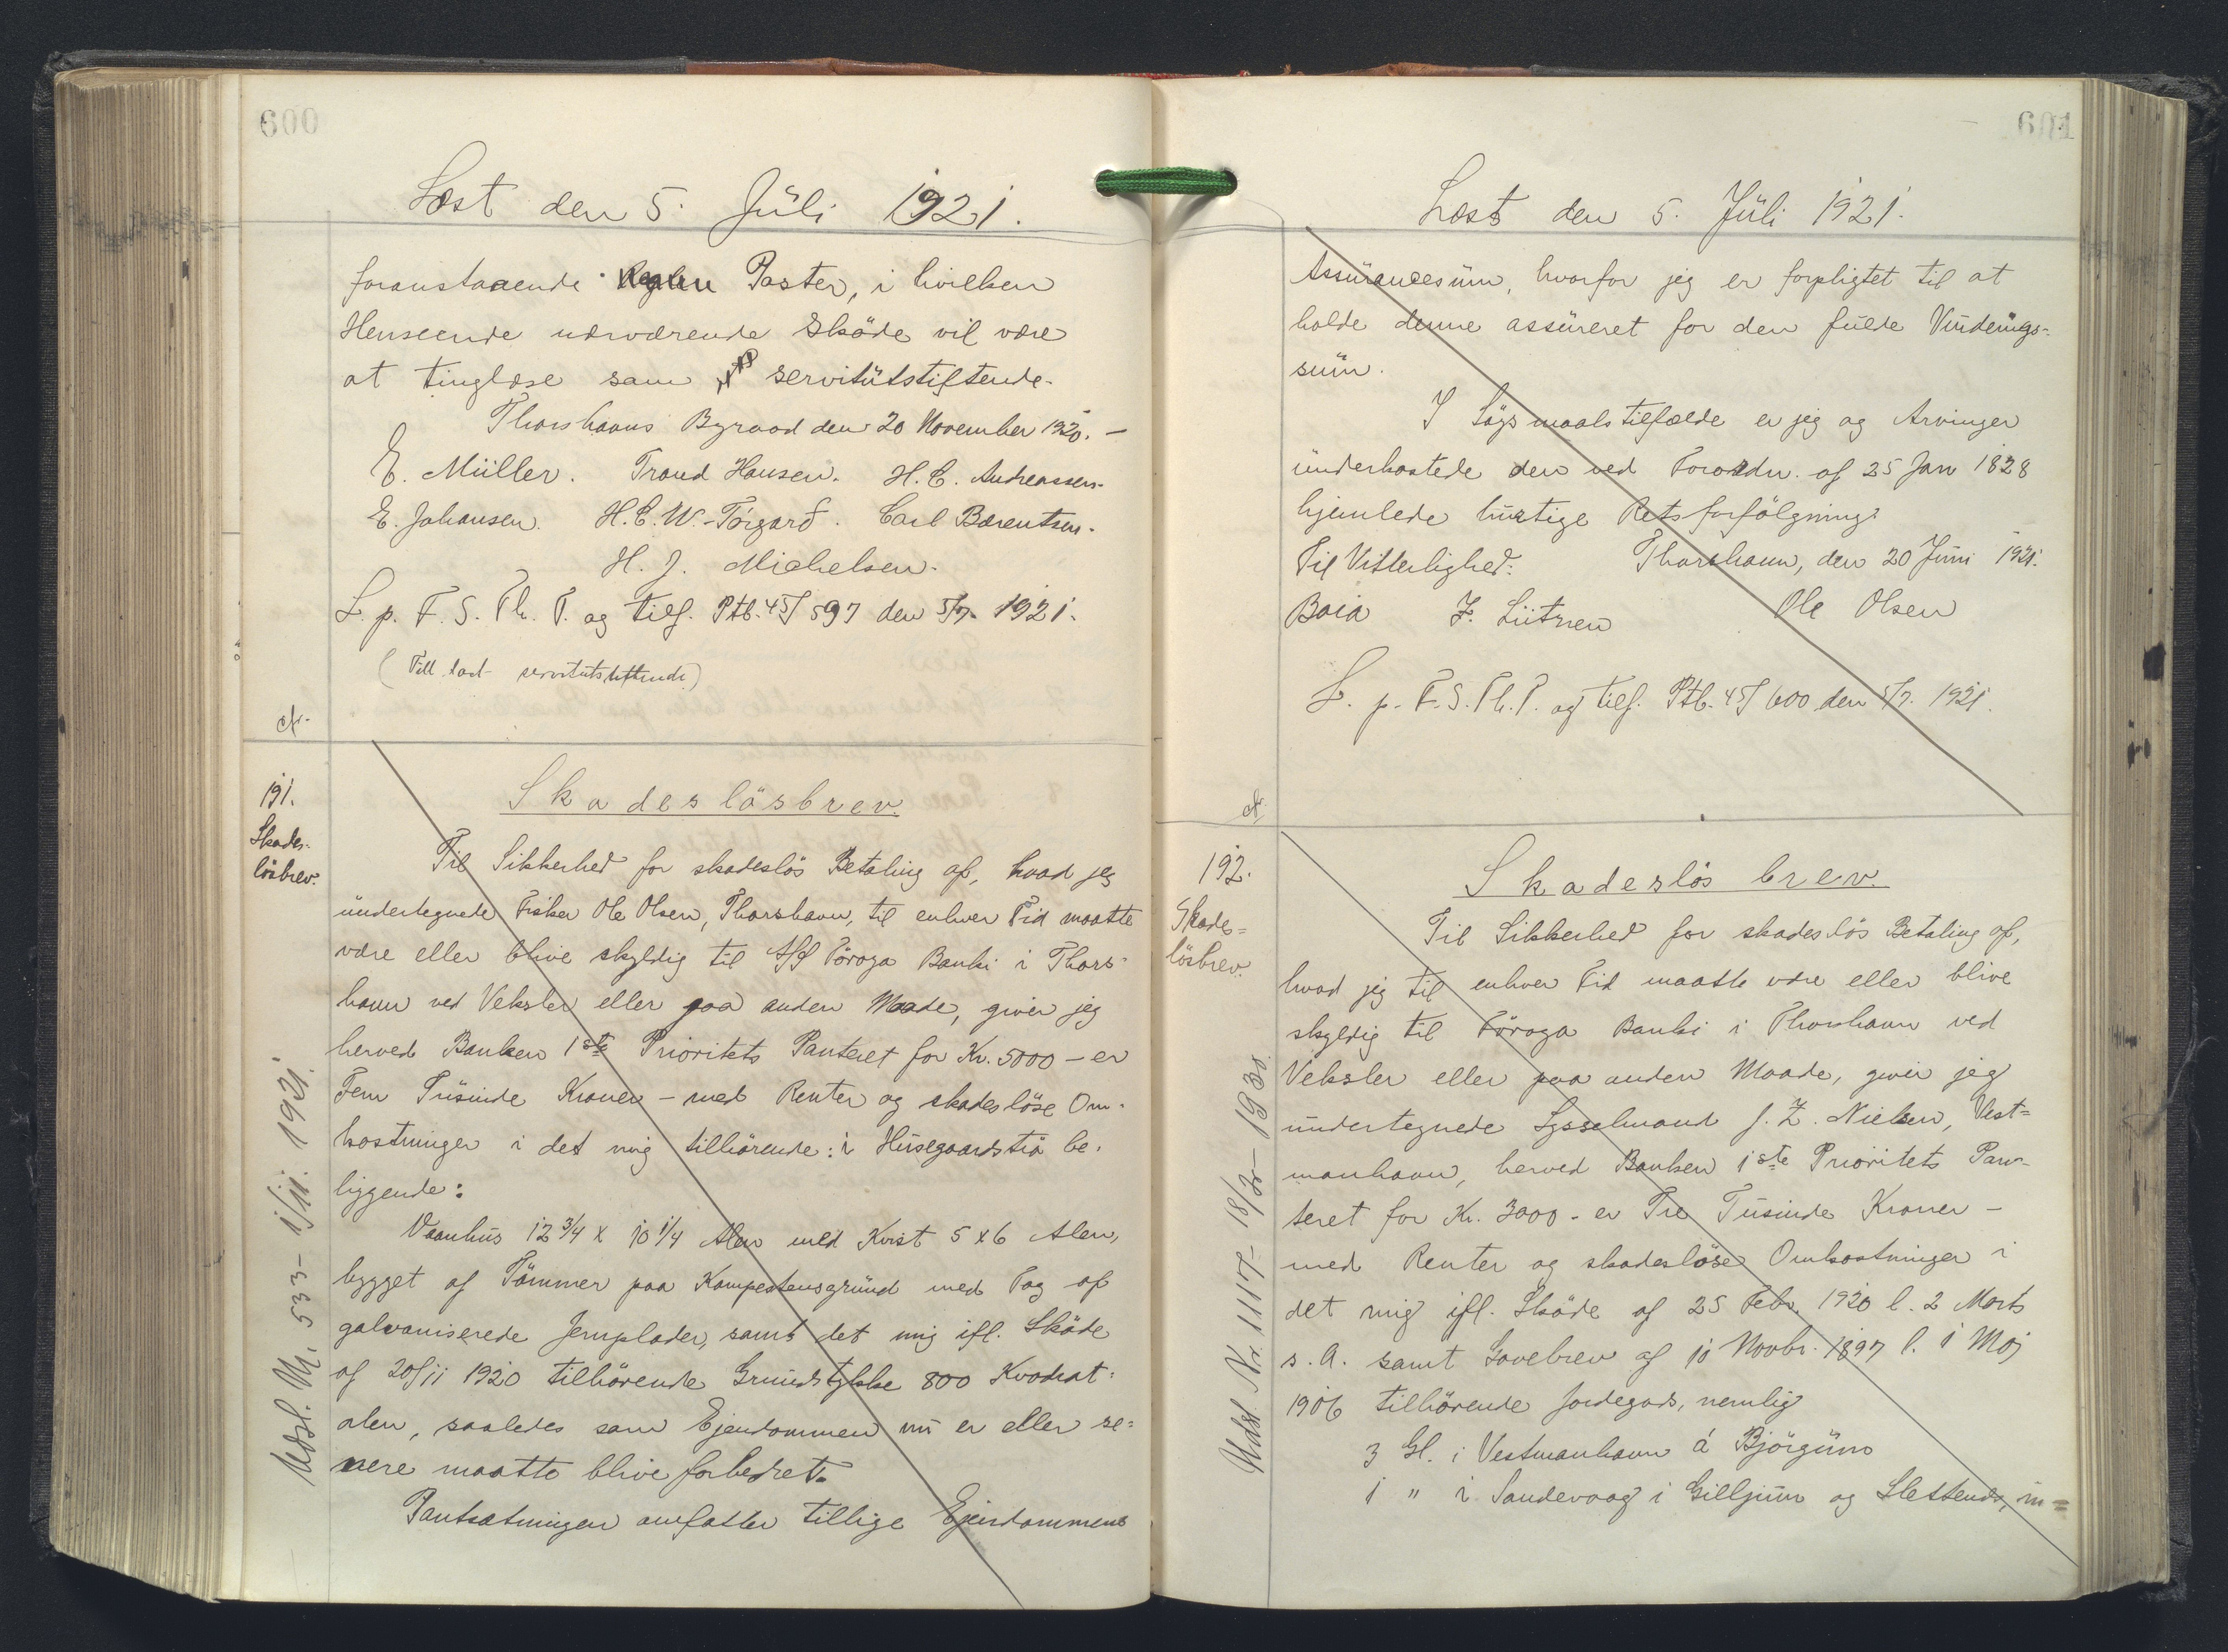 600
Læst den 5. Jüli 1921.
foranstaaende Poster, i hvilken
Henseende nærværende Sköde vil være
at tinglæse som servitütstiftende.
Thorshavns Byraad den 20 November 1920. -
E. Müller. Trond Hansen. H. C. Andreassen.
E. Johansen. H. C. W. Tórgarð. Carl Bærentsen.
H. J. Michelsen.
L. p. F. S. Th. T. og tilf. Ptb. 45/597 den 5/7. 1921.
(Till. læst servitutstiftende)
cfr.
191.
Skades-
lösbrev.
Skadeslösbrev.
Til Sikkerhed for skadeslös Betaling af, hvad jeg
ündertegnede Fisker Ole Olsen, Thorshavn, til enhver Tid maatte
være eller blive skyldig til A/S Föroya Banki i Thors-
havn ved Veksler eller paa anden Maade, giver jeg
herved Banken 1ste Prioritets Panteret for Kr. 5000 - er
Fem Tüsinde Kroner - med Renter og skadeslöse Om-
kostninger i det mig tilhörende: i Hüsegaardströ be-
liggende:
Vaanhüs 12 3/4 x 10 1/4 Alen med Kvist 5 x 6 Alen,
bygget af Tömmer paa Kampestensgründ med Tag af
galvaniserede Jernplader, samt det mig ifl. Sköde
af 20/11 1920 tilhörende Gründstykke 800 Kvadrat-
alen, saaledes som Ejendommen nü er eller se=
nere maatte blive forbedret.
Pantsætningen omfatter tillige Ejendommens
Udsl. Nr. 533 - 1/11. 1921.
601
Læst den 5. Jüli 1921.
Assürancesüm, hvorfor jeg er forpligtet til at
holde denne assüreret for den fülde Vürderings-
süm.
I Sögsmaalstilfælde er jeg og Arvinger
ünderkastede den ved Forordn. af 25 Jan 1828
hjemlede hürtige Retsforfölgning.
Til Vitterlighed: Thorshavn, den 20 Jüni 1921.
Boia Z. Lützen Ole Olsen
L. p. F. S. Th. T. og tilf. Ptb. 45/600 den 5/7. 1921.
cfr.
192.
Skade=
lösbrev.
Skadeslösbrev.
Til Sikkerhed for skadeslös Betaling af,
hvad jeg til enhver Tid maatte være eller blive
skyldig til Föroya Banki i Thorshavn ved
Veksler eller paa anden Maade, giver jeg
ündertegnede Sysselmand J. Z. Nielsen, Vest=
manhavn, herved Banken 1ste Prioritets Pan-
teret for Kr. 3000 - er Tre Tüsinde Kroner -
med Renter og skadeslöse Omkostninger i
det mig ifl. Sköde af 25 Febr. 1920 l. 2 Marts
s. A. samt Gavebrev af 10 Novbr. 1897 l. 1 Maj
1906 tilhörende Jordegods, nemlig
3 Gl. i Vestmanhavn á Björgüm
1 " i Sandevaag i Gilljüm og Slettende, in=
Udsl. Nr. 1117 - 18/ - 1930.